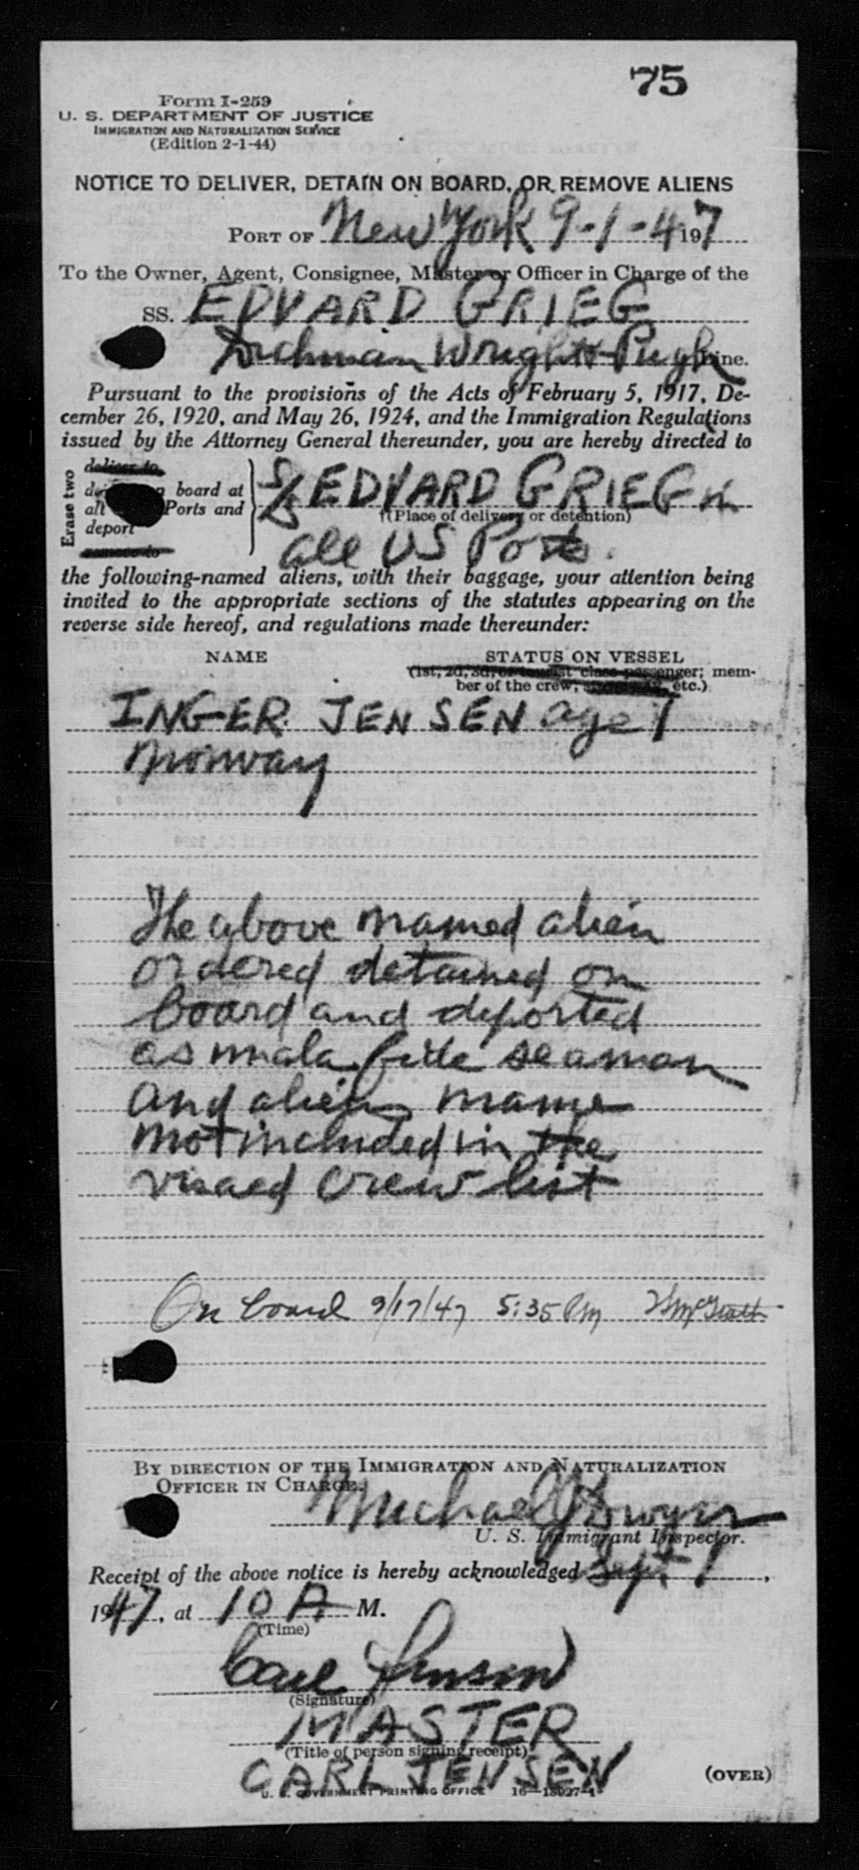 75
Form I-259
U. S. DEPARTMENT OF JUSTICE
IMMIGRATION AND NATURALIZATION SERVICE
(Edition 2-1-44)
NOTICE TO DELIVER, DETAIN ON BOARD, OR REMOVE ALIENS
PORT OF New York 9-1-4 197
To the Owner, Agent, Consignee, Master or Officer in Charge of the
SS. EDVARD GRIEG
Dichman Wright & Pugh Line.
Pursuant to the provisions of the Acts of February 5, 1917, De-
cember 26, 1920, and May 26, 1924, and the Immigration Regulations
issued by the Attorney General thereunder, you are hereby directed to
Erase two
deliver to
board at
all Ports and
deport
remove to
S/S EDVARD GRIEG in
(Place of delivery or detention)
all US Ports.
the following-named aliens, with their baggage, your attention being
invited to the appropriate sections of the statutes appearing on the
reverse side hereof, and regulations made thereunder:
NAME STATUS ON VESSEL
(1st, 2d, 3d, or tourist class passenger; mem-
ber of the crew, etc.)
INGER JENSEN age 7
Norway
The above named alien
ordered detained on
board and deported
as mala fide seaman
and alien name
not included in the
visaed crew list
On board 9/17/47 5:35 PM McGrath
BY DIRECTION OF THE IMMIGRATION AND NATURALIZATION
OFFICER IN CHARGE.
Michael J Dwyer
U. S. Immigrant Inspector.
Receipt of the above notice is hereby acknowledged Sept 1,
1947, at 10 A M.
(Time)
Carl Jensen
(Signature)
MASTER
(Title of person signing receipt)
CARL JENSEN
(OVER)
U. S. GOVERNMENT PRINTING OFFICE 16—18027-1